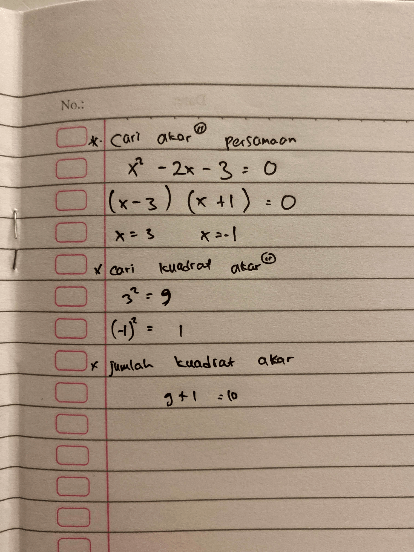 No.:
*. Cari akar" persamaan
x² - 2x - 3 = 0
(x-3) (x+1) = 0
x = 3 x=-1
* Cari kuadrat akar"
3² = 9
(-1)² = 1
* Jumlah kuadrat akar
9+1 =10